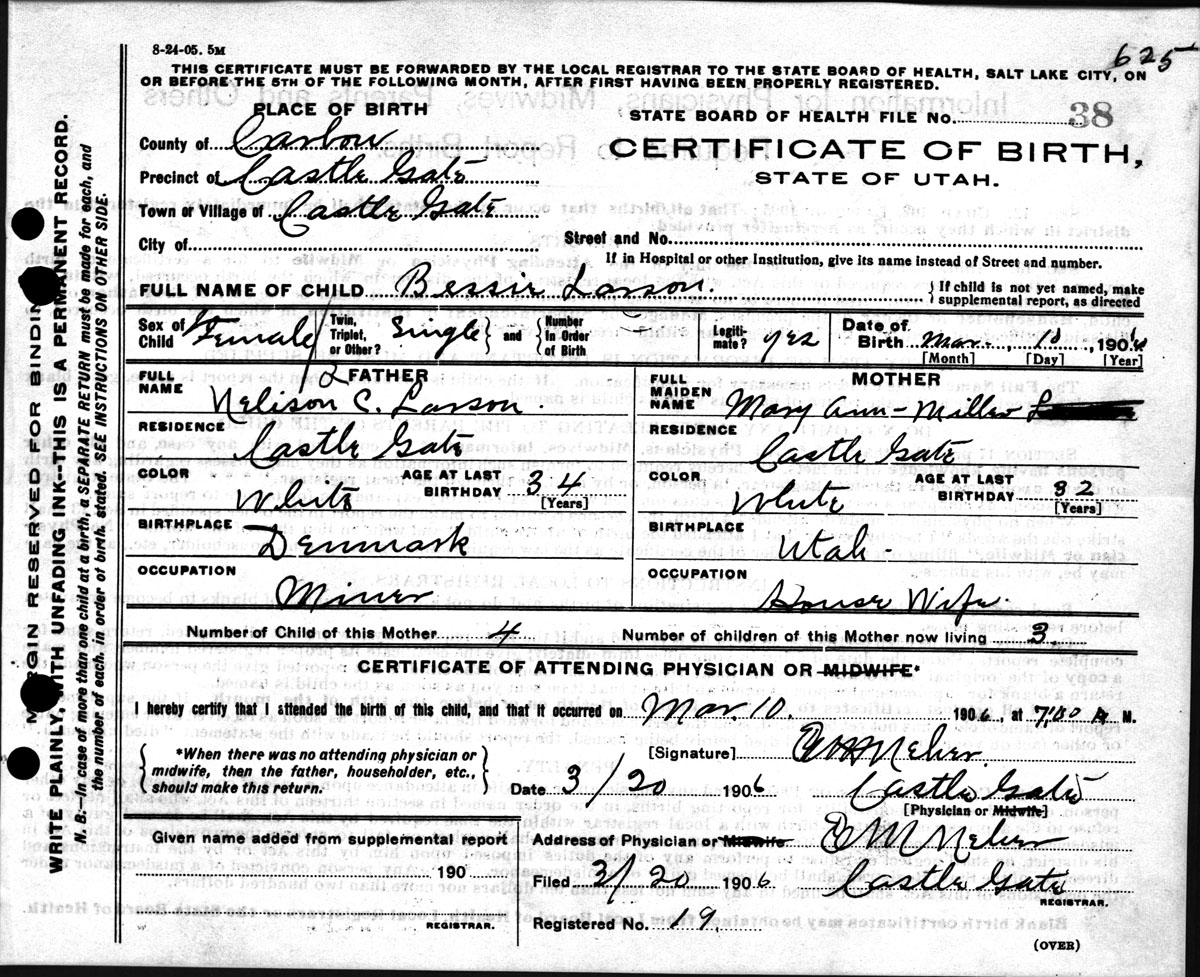 8-24-05. 5M
625
THIS CERTIFICATE MUST BE FORWARDED BY THE LOCAL REGISTRAR TO THE STATE BOARD OF HEALTH, SALT LAKE CITY, ON
OR BEFORE THE 5TH OF THE FOLLOWING MONTH, AFTER FIRST HAVING BEEN PROPERLY REGISTERED.
PLACE OF BIRTH
STATE BOARD OF HEALTH FILE No. 38
County of Carbon
CERTIFICATE OF BIRTH,
Precinct of Castle Gate
STATE OF UTAH.
Town or Village of Castle Gate
City of
Street and No.
If in Hospital or other Institution, give its name instead of Street and number.
FULL NAME OF CHILD Bessie Larson. { If child is not yet named, make supplemental report, as directed
Sex of Child Female { Twin, Triplet, or Other? Single } and { Number in Order of Birth Legitimate? yes Date of Birth Mar. 10 1906
[Month] [Day] [Year]
FATHER
MOTHER
FULL NAME Nelison C. Larson.
FULL MAIDEN NAME Mary Ann - Miller
RESIDENCE Castle Gate
RESIDENCE Castle Gate
COLOR White AGE AT LAST BIRTHDAY 34 [Years]
COLOR White AGE AT LAST BIRTHDAY 32 [Years]
BIRTHPLACE Denmark
BIRTHPLACE Utah -
OCCUPATION Miner
OCCUPATION House Wife.
Number of Child of this Mother 4 Number of children of this Mother now living 3
CERTIFICATE OF ATTENDING PHYSICIAN OR MIDWIFE*
I hereby certify that I attended the birth of this child, and that it occurred on Mar. 10. 1906, at 7:00 A M.
{ *When there was no attending physician or midwife, then the father, householder, etc., should make this return. }
[Signature]
Date 3/20 1906 Castle Gate
[Physician or Midwife]
Given name added from supplemental report
190
REGISTRAR.
Address of Physician or Midwife
Filed 3/20 1906 Castle Gate
REGISTRAR.
Registered No. 19.
(OVER)
MARGIN RESERVED FOR BINDING
WRITE PLAINLY, WITH UNFADING INK--THIS IS A PERMANENT RECORD.
N. B.--In case of more than one child at a birth, a SEPARATE RETURN must be made for each, and
the number of each, in order of birth, stated. SEE INSTRUCTIONS ON OTHER SIDE.